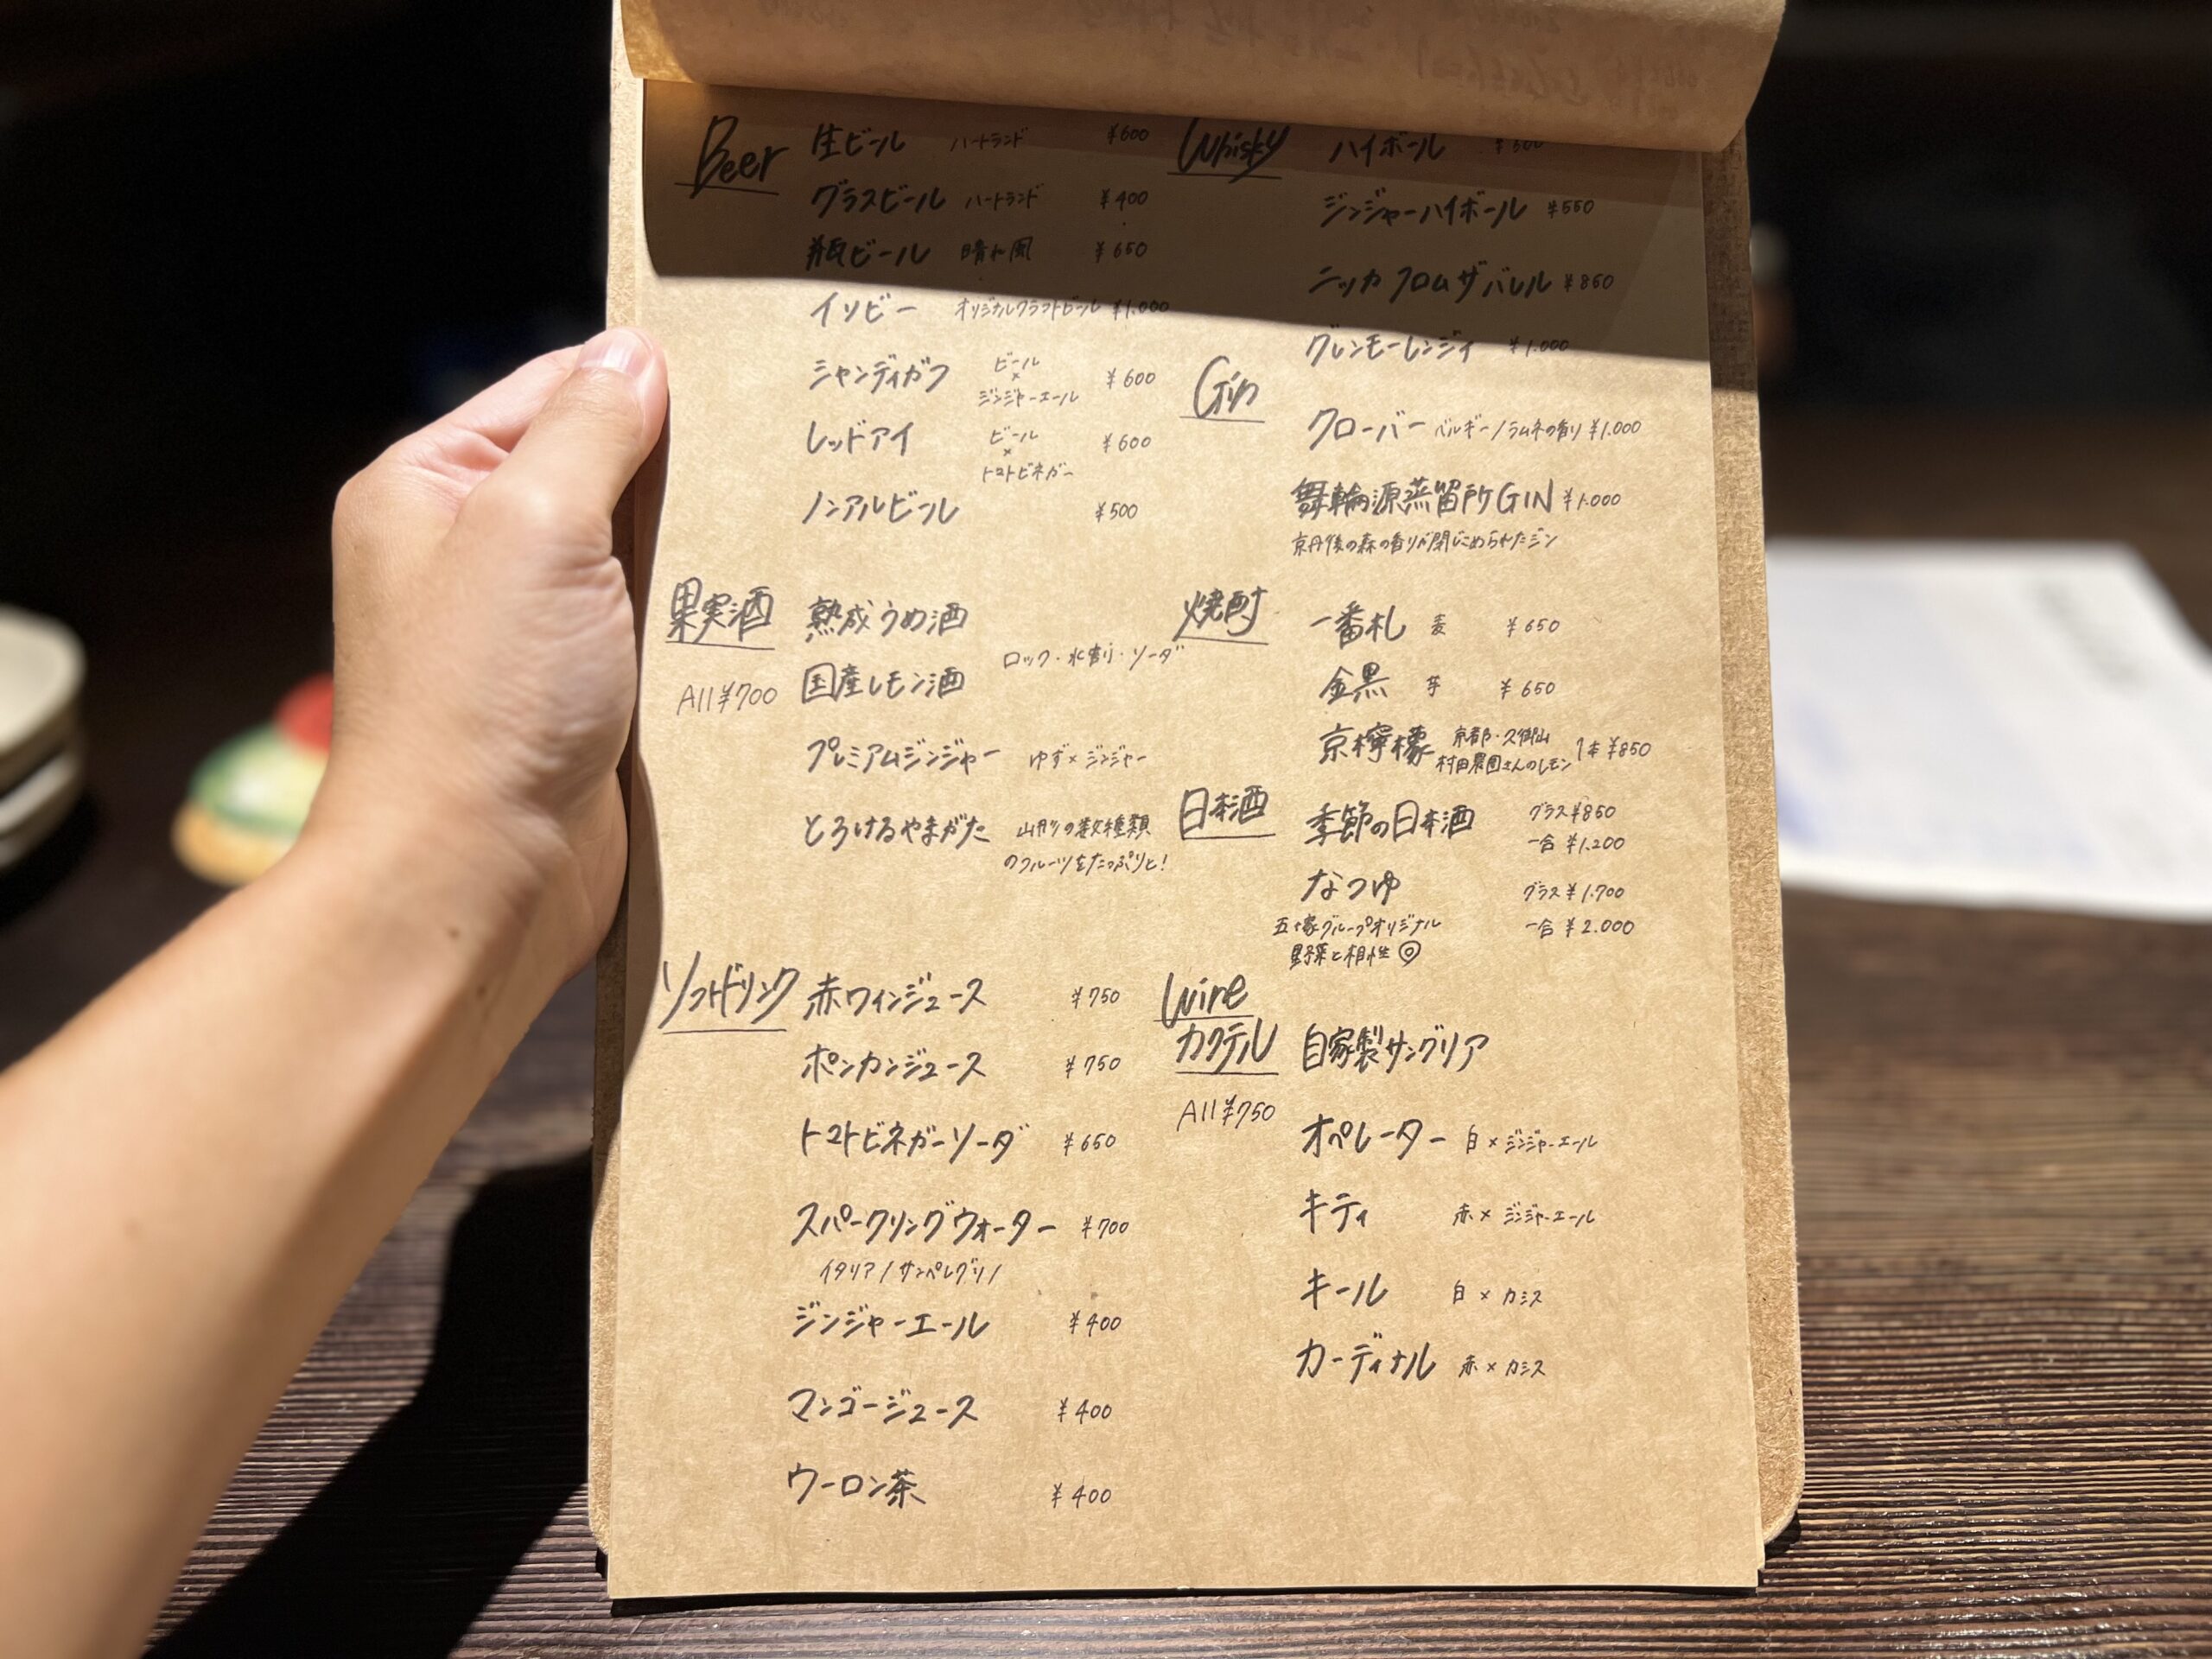 Beer
生ビール ハートランド ¥600
グラスビール ハートランド ¥400
瓶ビール 晴れ風 ¥650
イソビー オリジナルクラフトビール ¥1.000
シャンディガフ ビール × ジンジャーエール ¥600
レッドアイ ビール × トマトビネガー ¥600
ノンアルビール ¥500
果実酒
All ¥700
熟成うめ酒
国産レモン酒
ロック・水割り・ソーダ
プレミアムジンジャー ゆず×ジンジャー
とろけるやまがた 山形の数種類
のフルーツをたっぷりと!
ソフトドリンク
赤ワインジュース ¥750
ポンカンジュース ¥750
トマトビネガーソーダ ¥650
スパークリングウォーター ¥700
イタリア/サンペレグリノ
ジンジャーエール ¥400
マンゴージュース ¥400
ウーロン茶 ¥400
Whisky
ハイボール
ジンジャーハイボール ¥550
ニッカ フロム ザ バレル ¥850
グレンモーレンジィ ¥1.000
Gin
クローバー ベルギー/ラムネの香り ¥1.000
舞輪源蒸留所GIN ¥1.000
京丹後の森の香りが閉じこめられたジン
焼酎
一番札 麦 ¥650
金黒 芋 ¥650
京檸檬 京都・久御山
村田農園さんのレモン 1本 ¥850
日本酒
季節の日本酒 グラス ¥850
一合 ¥1.200
なつゆ グラス ¥1.700
一合 ¥2.000
五十家グループオリジナル
野菜と相性◎
Wine
カクテル
All ¥750
自家製サングリア
オペレーター 白×ジンジャーエール
キティ 赤×ジンジャーエール
キール 白×カシス
カーディナル 赤×カシス